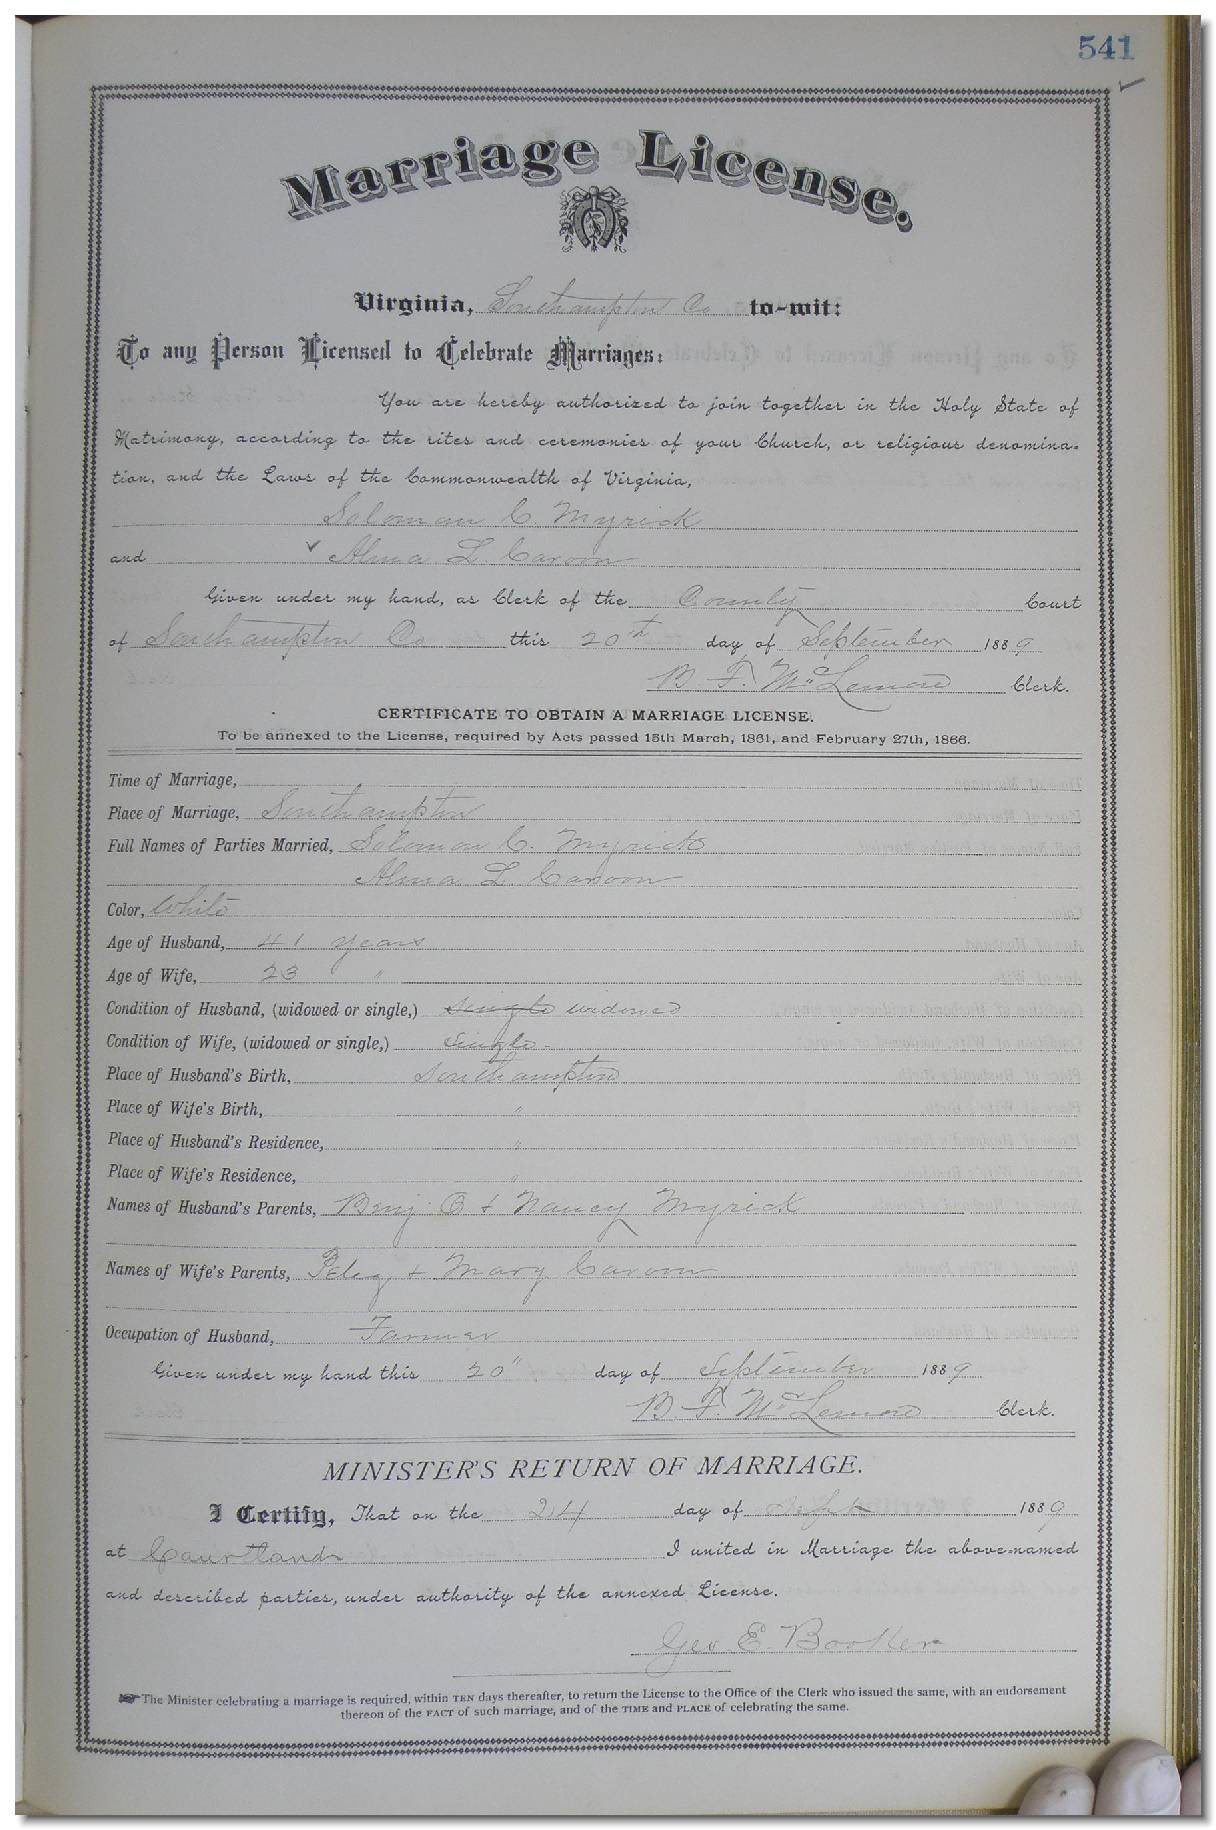 541
Marriage License.
Virginia, Southampton Co to-wit:
To any Person Licensed to Celebrate Marriages:
You are hereby authorized to join together in the Holy State of
Matrimony, according to the rites and ceremonies of your Church, or religious denomina-
tion, and the Laws of the Commonwealth of Virginia,
Solomon C Myrick
and Alma L. Caroon
Given under my hand, as Clerk of the County Court
of Southampton Co this 20th day of September 1889
B. F. McLemore Clerk.
CERTIFICATE TO OBTAIN A MARRIAGE LICENSE.
To be annexed to the License, required by Acts passed 15th March, 1861, and February 27th, 1866.
Time of Marriage,
Place of Marriage, Southampton
Full Names of Parties Married, Solomon C. Myrick
Alma L. Caroon
Color, White
Age of Husband, 41 years
Age of Wife, 23 "
Condition of Husband, (widowed or single,) single widowed
Condition of Wife, (widowed or single,) single
Place of Husband's Birth, Southampton
Place of Wife's Birth, "
Place of Husband's Residence, "
Place of Wife's Residence, "
Names of Husband's Parents, Benj. & Nancy Myrick
Names of Wife's Parents, Peleg & Mary Caroon
Occupation of Husband, Farmer
Given under my hand this 20" day of September 1889
B. F. McLemore Clerk.
MINISTER'S RETURN OF MARRIAGE.
I Certify, That on the 24 day of Sept 1889
at Courtland I united in Marriage the above-named
and described parties, under authority of the annexed License.
Geo. E. Booker
The Minister celebrating a marriage is required, within TEN days thereafter, to return the License to the Office of the Clerk who issued the same, with an endorsement
thereon of the FACT of such marriage, and of the TIME and PLACE of celebrating the same.